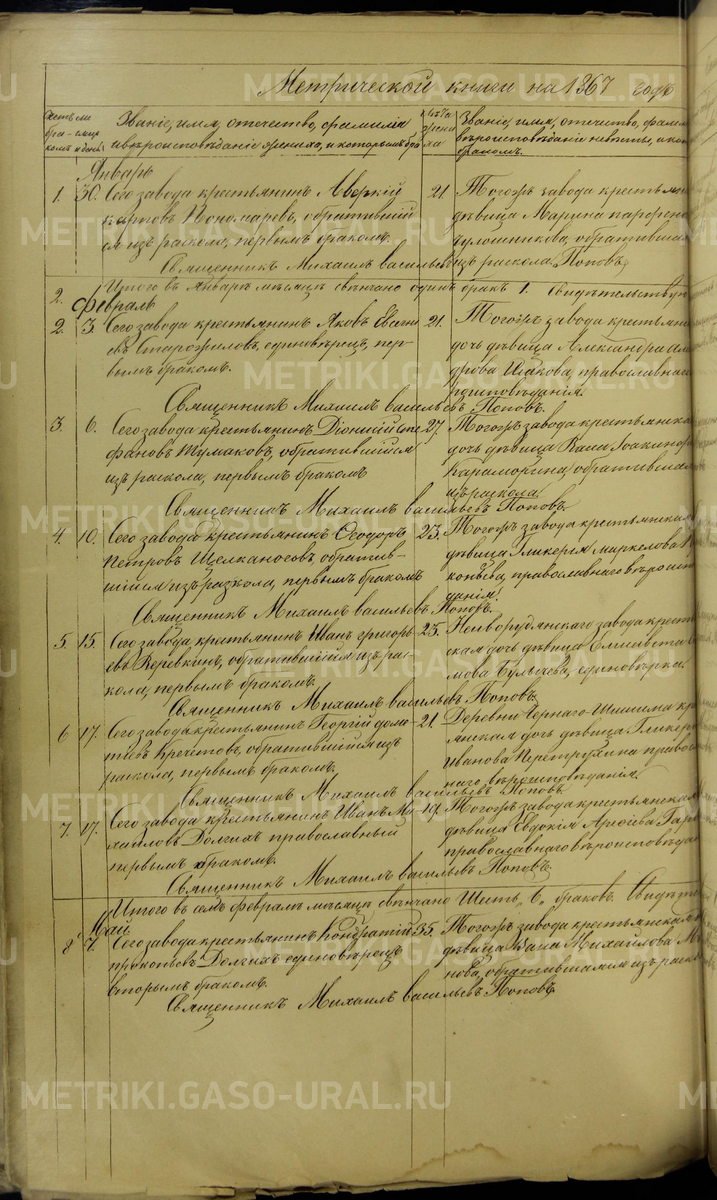 Метрической книги на 1867 годъ
Званіе, имя, отчество, фамилія
и вѣроисповѣданіе жениха, и которымъ бра
Званіе, имя, отчество, фамил
вѣроисповѣданіе невѣсты, и ко
бракомъ.
Январь
1. 30. Сего завода крестьянинъ Аверкій
Карповъ Пономаревъ, обратившій
ся изъ раскола, первымъ бракомъ.
21. Тогожъ завода крестьян
дѣвица Марина Парфено
обратившая
изъ раскола.
Священникъ Михаилъ Васильевъ Поповъ.
Итого въ Январѣ мѣсяцѣ свѣнчано одинъ бракъ 1. Свидѣтельству
2.
Февраль
2. 3. Сего завода крестьянинъ Яковъ Евсеи
евъ Старожиловъ, единовѣрецъ, пер-
вымъ бракомъ.
21. Тогожъ завода крестьянс
дочь дѣвица Александра
православнаго
исповѣданія.
Священникъ Михаилъ Васильевъ Поповъ.
3. 6. Сего завода крестьянинъ Діонисій Сте
фановъ Тумаковъ, обратившійся
изъ раскола, первымъ бракомъ
27. Тогожъ завода крестьянска
дочь дѣвица Васса Іоакимов
обратившая
изъ раскола.
Священникъ Михаилъ Васильевъ Поповъ.
4. 10. Сего завода крестьянинъ Ѳеодоръ
Петровъ Щелканоговъ обратив-
шійся изъ разкола, первымъ бракомъ
23. Тогожъ завода крестьянская
дѣвица Гликерія Маркелова
православнаго вѣроиспо
данія.
Священникъ Михаилъ Васильевъ Поповъ.
5. 15. Сего завода крестьянинъ Иванъ Григорь
евъ Веревкинъ, обратившійся изъ рас
кола, первымъ бракомъ.
23. Нейворудянскаго завода крест
ская дочь дѣвица Елисавета
мова Булычева, единовѣрка.
Священникъ Михаилъ Васильевъ Поповъ.
6 17. Сего завода крестьянинъ Георгій Доме-
тіевъ обратившійся изъ
раскола, первымъ бракомъ.
21. Деревни Чернаго Шишима кре
янская дочь дѣвица Гликер
Иванова Перетрухина правос
наго вѣроисповѣданія.
Священникъ Михаилъ Васильевъ Поповъ.
7. 17. Сего завода крестьянинъ Иванъ Ми
хаиловъ Долгихъ православный
первымъ бракомъ.
19. Тогожъ завода крестьянская
дѣвица Евдокія
православнаго вѣроисповѣда
Священникъ Михаилъ Васильевъ Поповъ.
Итого въ семъ Февралѣ мѣсяцѣ свѣнчано Шесть „6" браковъ. Свидѣте
Май
8 7. Сего завода крестьянинъ Кондратій
Прокопьевъ Долгихъ единовѣрецъ
вторымъ бракомъ.
35. Тогожъ завода крестьянская
дѣвица Михайлова
нова, обратившаяся изъ раск
Священникъ Михаилъ Васильевъ Поповъ.
METRIKI.GASO-URAL.RU